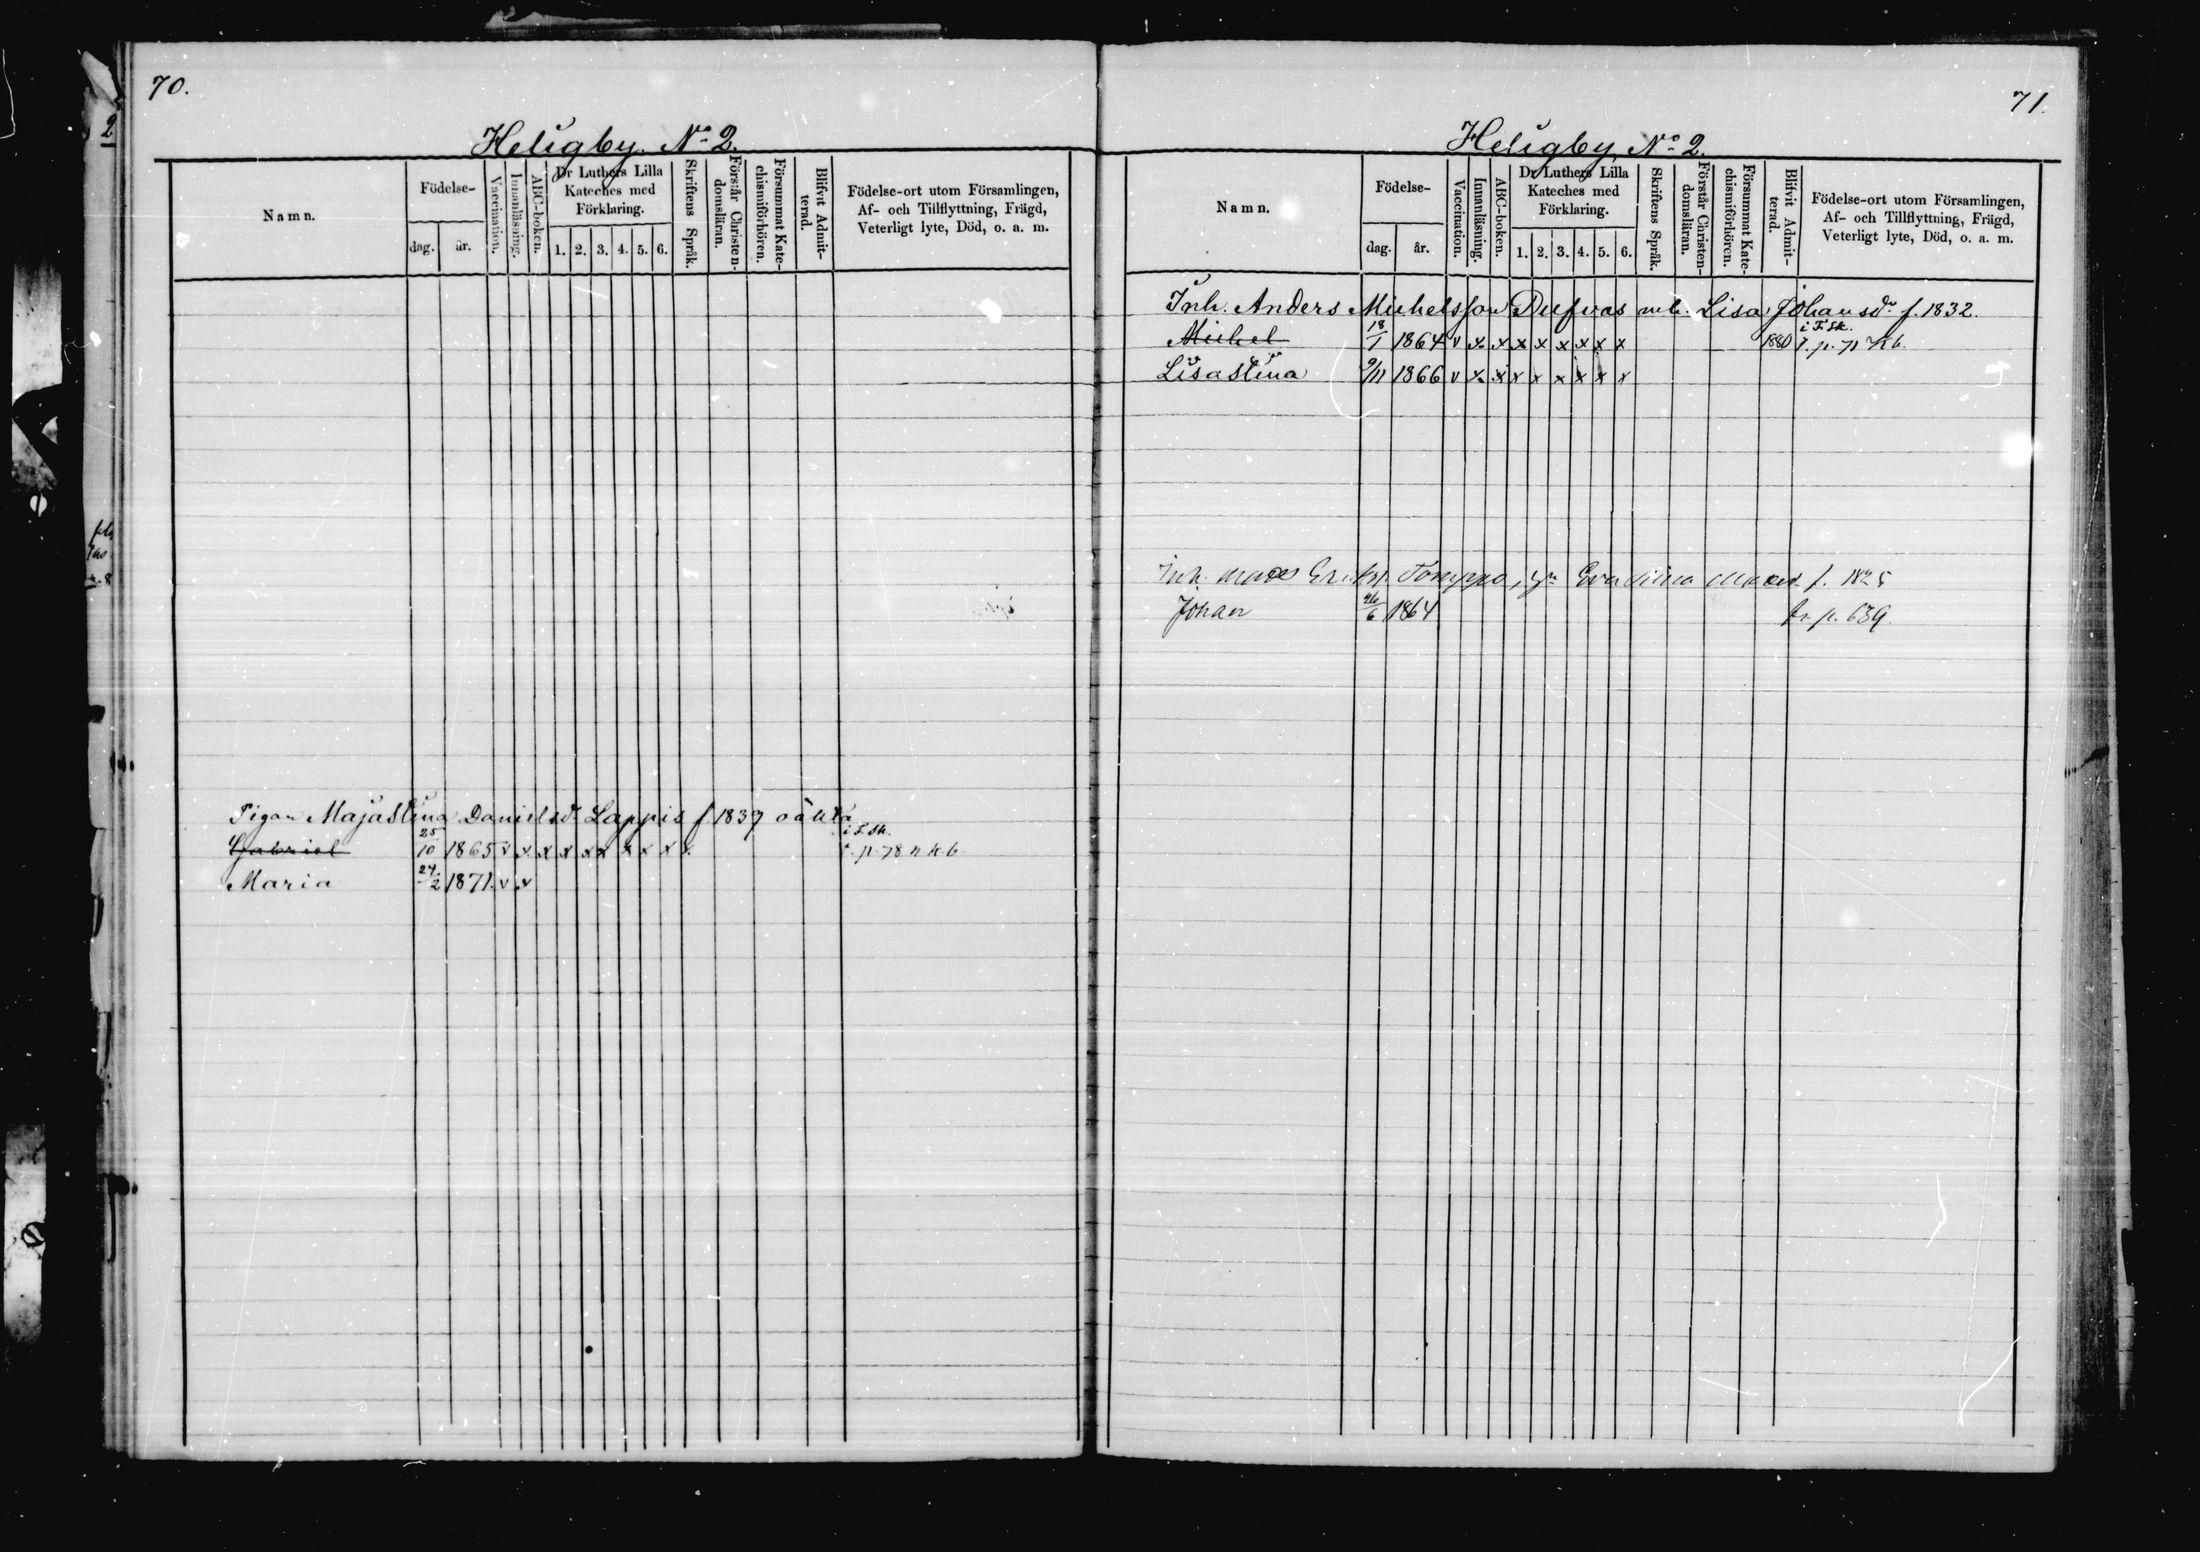 70.
Heligby. No 2.
Namn.
Födelse-
dag. år.
Vaccination.
Innanläsning.
ABC-boken.
Dr Luthers Lilla
Kateches med
Förklaring.
1. 2. 3. 4. 5. 6.
Skriftens Språk.
Förstår Christen-
domsläran.
Försummat Kate-
chismiförhören.
Blifvit Admit-
terad.
Födelse-ort utom Församlingen,
Af- och Tillflyttning, Frägd,
Veterligt lyte, Död, o. a. m.
Pigan Majastina Danielsdr Lappis f 1837 oäkta
i F. Sk.
Gabriel 25/10 1865 v x x x x x x x x p. 78 n k b
Maria 24/2 1871. v v
71.
Heligby No 2.
Namn.
Födelse-
dag. år.
Vaccination.
Innanläsning.
ABC-boken.
Dr Luthers Lilla
Kateches med
Förklaring.
1. 2. 3. 4. 5. 6.
Skriftens Språk.
Förstår Christen-
domsläran.
Försummat Kate-
chismiförhören.
Blifvit Admit-
terad.
Födelse-ort utom Församlingen,
Af- och Tillflyttning, Frägd,
Veterligt lyte, Död, o. a. m.
Inh. Anders Michelsson Dufvas m. h. Lisa Johansdr f. 1832.
i F. Sk.
Michel 18/1 1864 v x x x x x x x x 1880 p. 71 n k b.
Lisastina 9/11 1866 v x x x x x x x x
Inh. Eriks. Tomppo, Eva Stina f. 1825
Johan 26/6 1864 fr. p. 639.